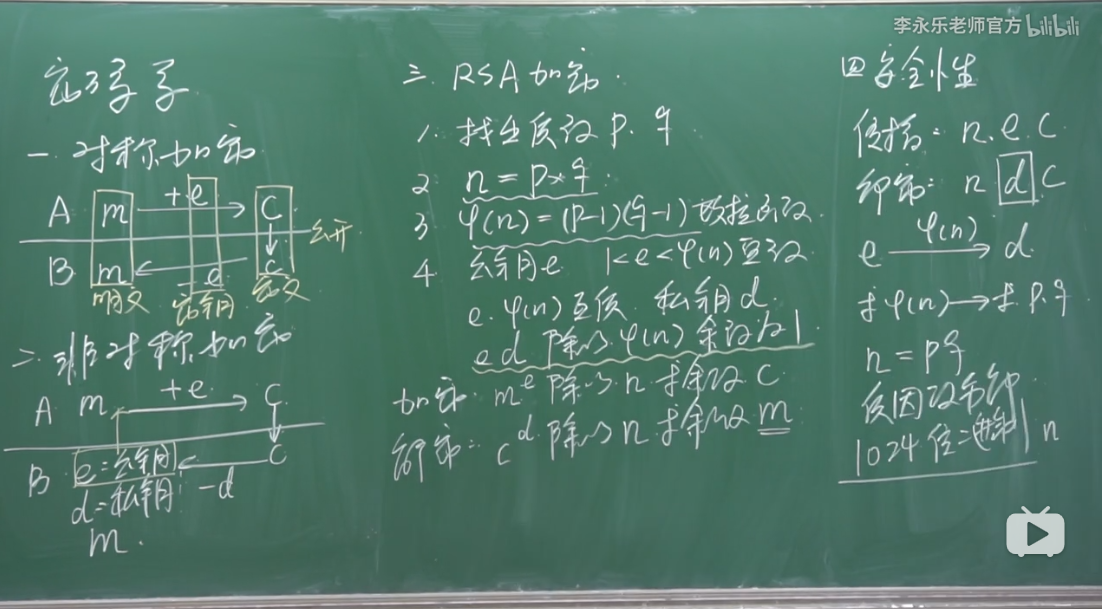 李永乐老师官方 bilibili
密码学
一. 对称加密
A m +e C
公开
B m e c
明文 密钥 密文
二. 非对称加密
A m +e C
B e=公钥 C
d=私钥 -d
m.
三. RSA加密.
1. 找出质数 p. q
2 n = p×q
3 φ(n)=(p-1)(q-1) 欧拉函数
4 公钥e 1<e<φ(n) 整数
e. φ(n)互质. 私钥d.
ed 除以 φ(n) 余数为1
加密: m^e 除以 n 求余数 C
解密: c^d 除以 n 求余数 m
四 安全性
传播: n. e. c
解密: n d C
e φ(n) d
求φ(n)→求p.q
n = pq
质因数分解
1024位二进制 n